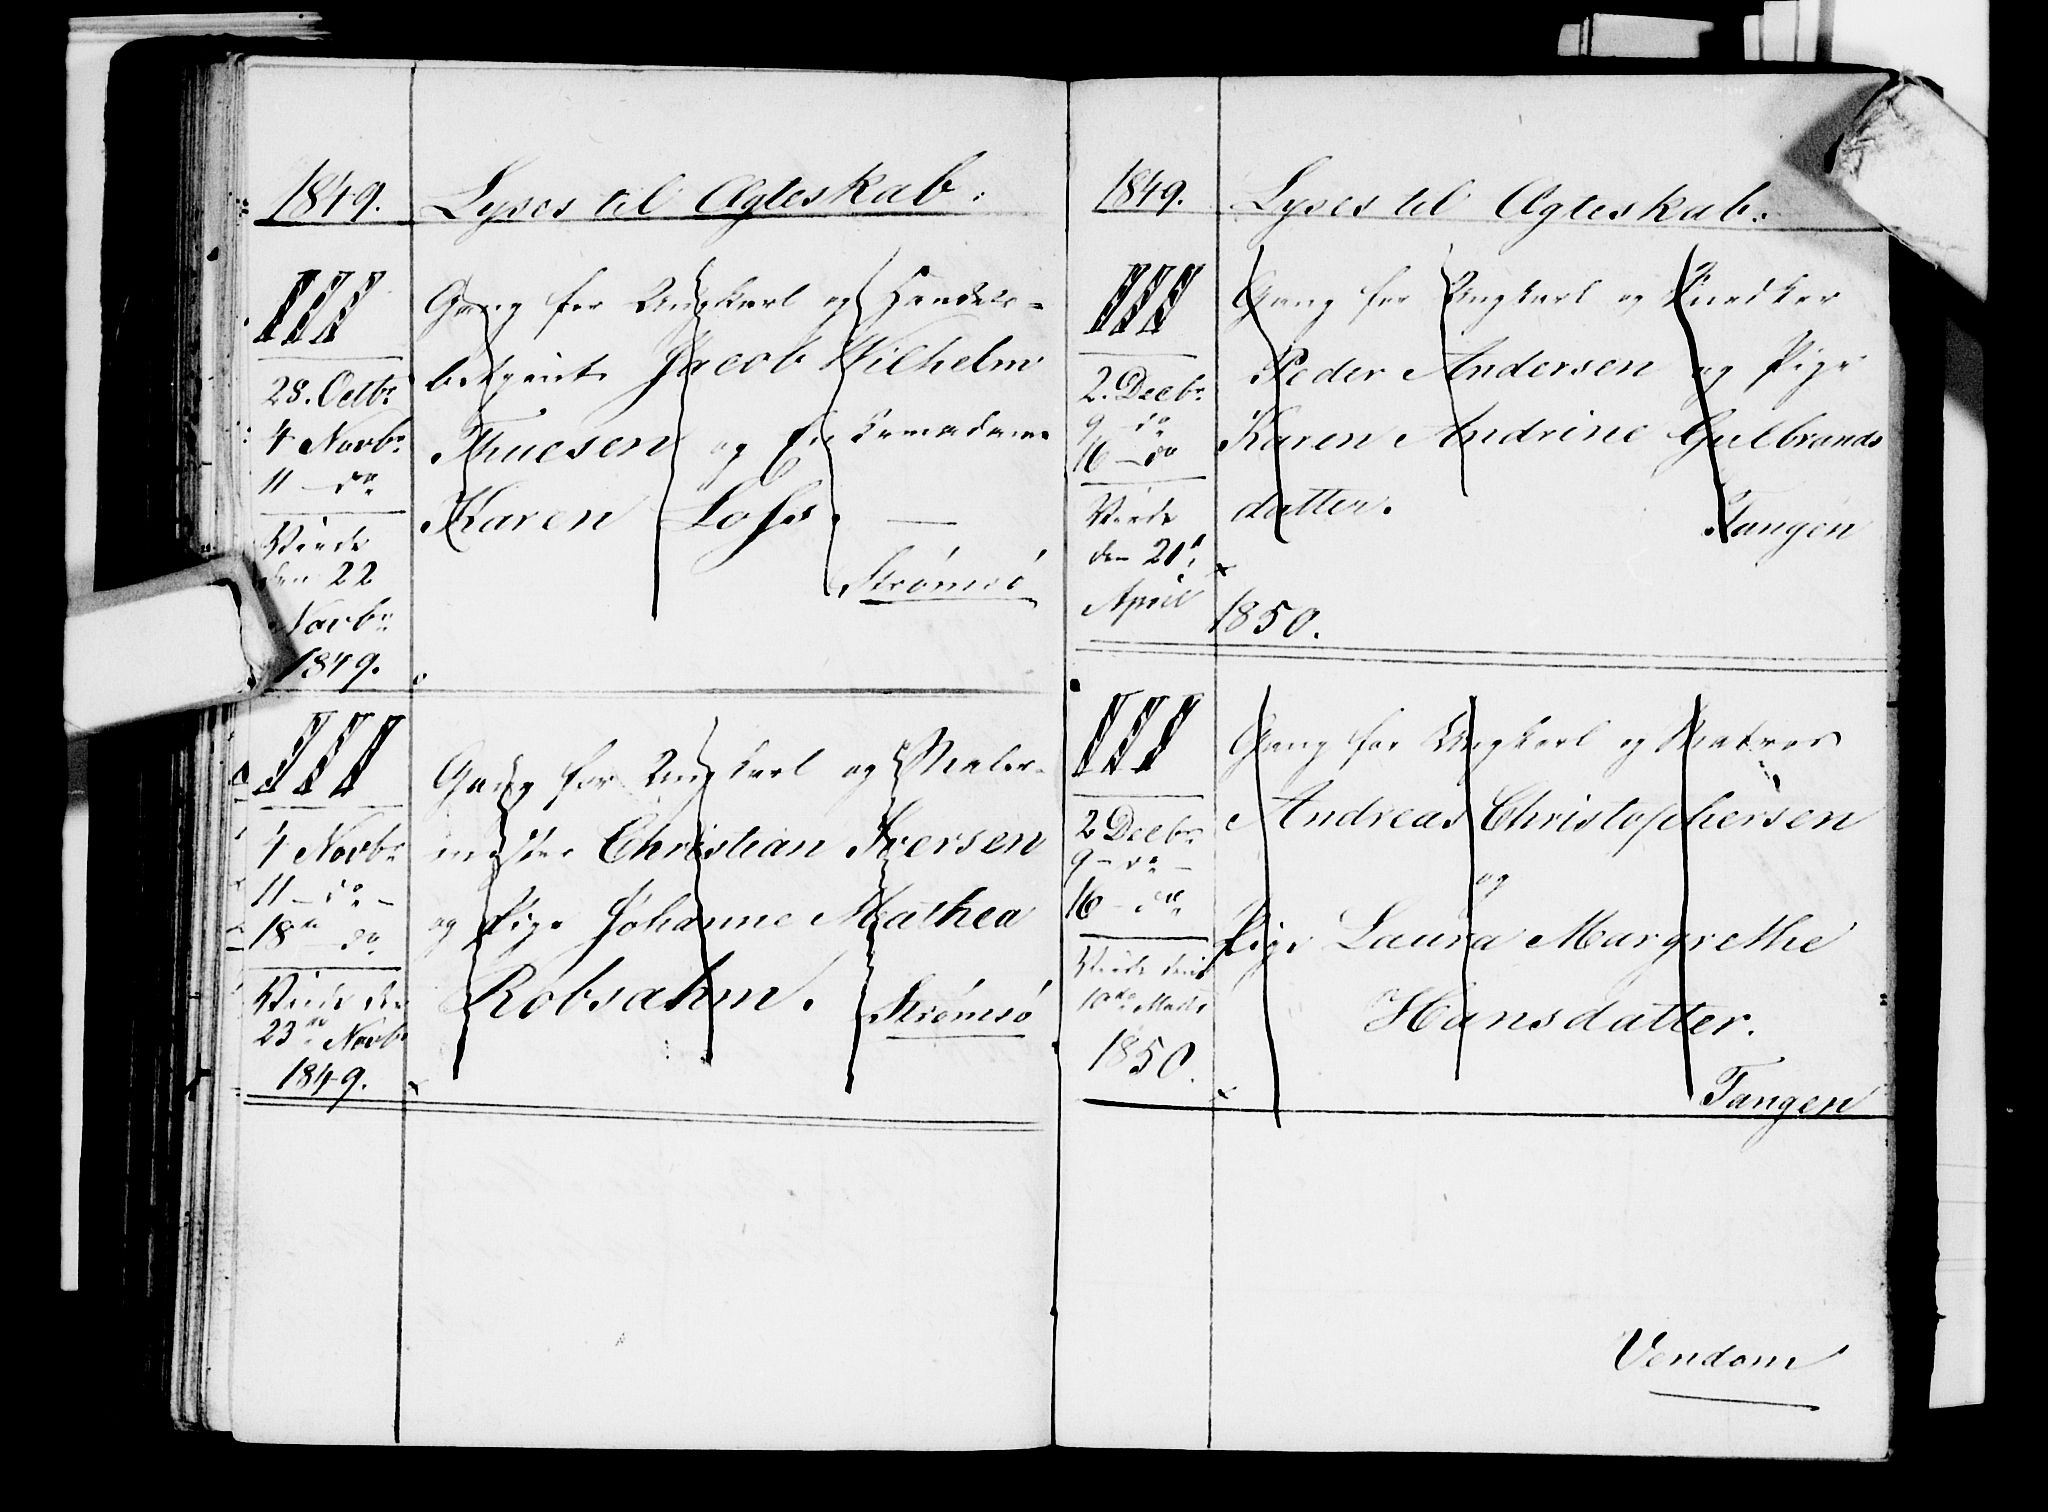 1849. Lyses til Ægteskab:
III Gang for Ungkarl og Handels-
betjent Jacob Wilhelm
Thuesen og Enkemadame
Karen Loss. —
Strømsö
28. Octbr
4 Novbr
11 — do
Viede
den 22
Novbr
1849.
III Gang for Ungkarl og Maler-
mester Christian Iversen
og Pige Johanne Mathea
Robsahm. Strömsö
4 Novbr
11 — do —
18 — do
Viede den
23de Novbr
1849.
1849. Lyses til Ægteskab:
III Gang for Ungkarl og Snedker
Peder Andersen og Pige
Karen Andrine Gulbrands
datter. Tangen
2. Decbr
9 — do
16 — do
Viede
den 21
April
1850.
III Gang for Ungkarl og Matros
Andreas Christophersen
og
Pige Laura Margrethe
Hansdatter.
Tangen
2 Decbr
9 — do —
16 — do
Viede den
10de
1850.
Vendom